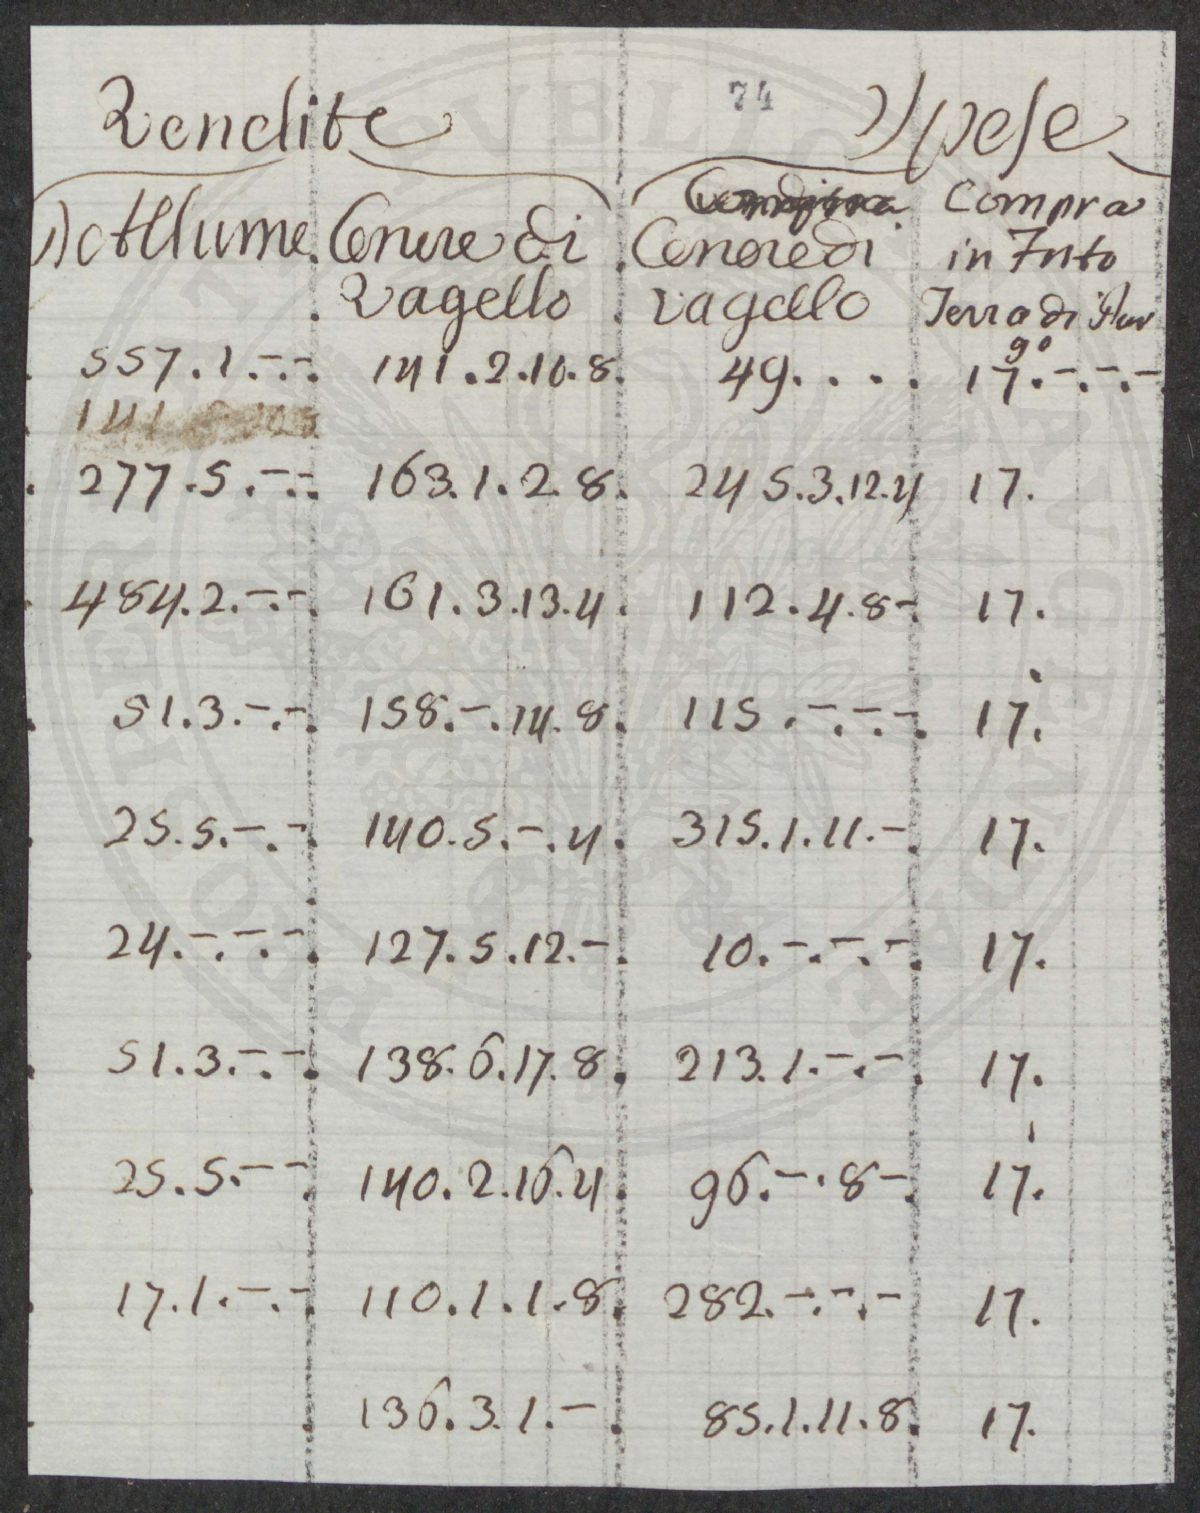 74
Rendite Spese
Compra
Cenere di Cenere di in Tnto
Vagello vagello Terra di
9°
557.1.-.-. 141.2.10.8. 49.... 17.-.-.-
141
277.5.-.-. 163.1.2.8. 245.3.12.4 17.
484.2.-.-. 161.3.13.4. 112.4.8-. 17.
51.3.-.-. 158.-.14.8. 115.-.-.-. 17.
25.5.-.-. 140.5.-.4. 315.1.11.-. 17.
24.-.-.-. 127.5.12.-. 10.-.-.-. 17.
51.3.-.-. 138.6.17.8. 213.1.-.-. 17.
25.5.-.-. 140.2.16.4. 96.-.8-. 17.
17.1.-.-. 110.1.1.8. 282.-.-.- 17.
136.3.1.-. 85.1.11.8. 17.